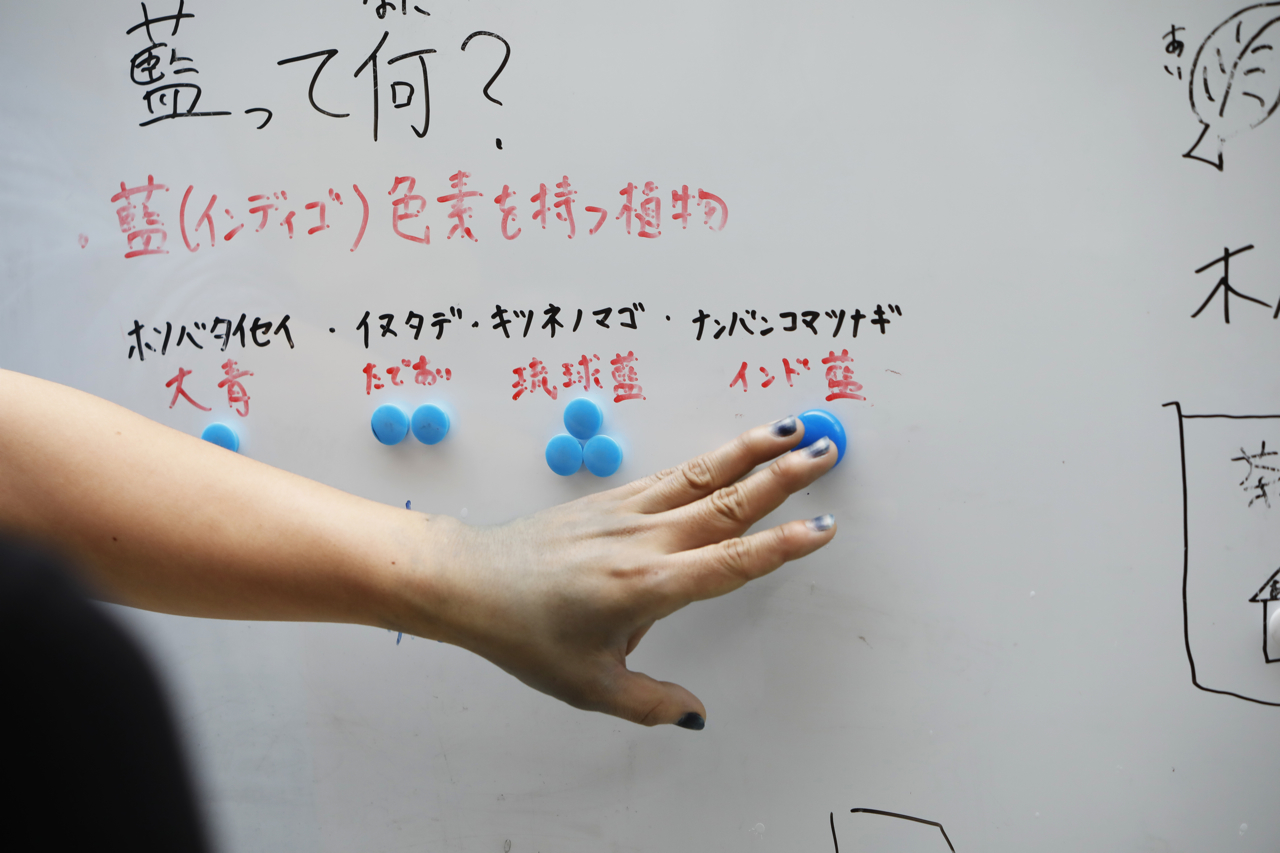 なに
藍って何?
・藍(インディゴ)色素を持つ植物
ホソバタイセイ・イヌタデ・キツネノマゴ・ナンバンコマツナギ
大青 たであい 琉球藍 インド藍
あい
木